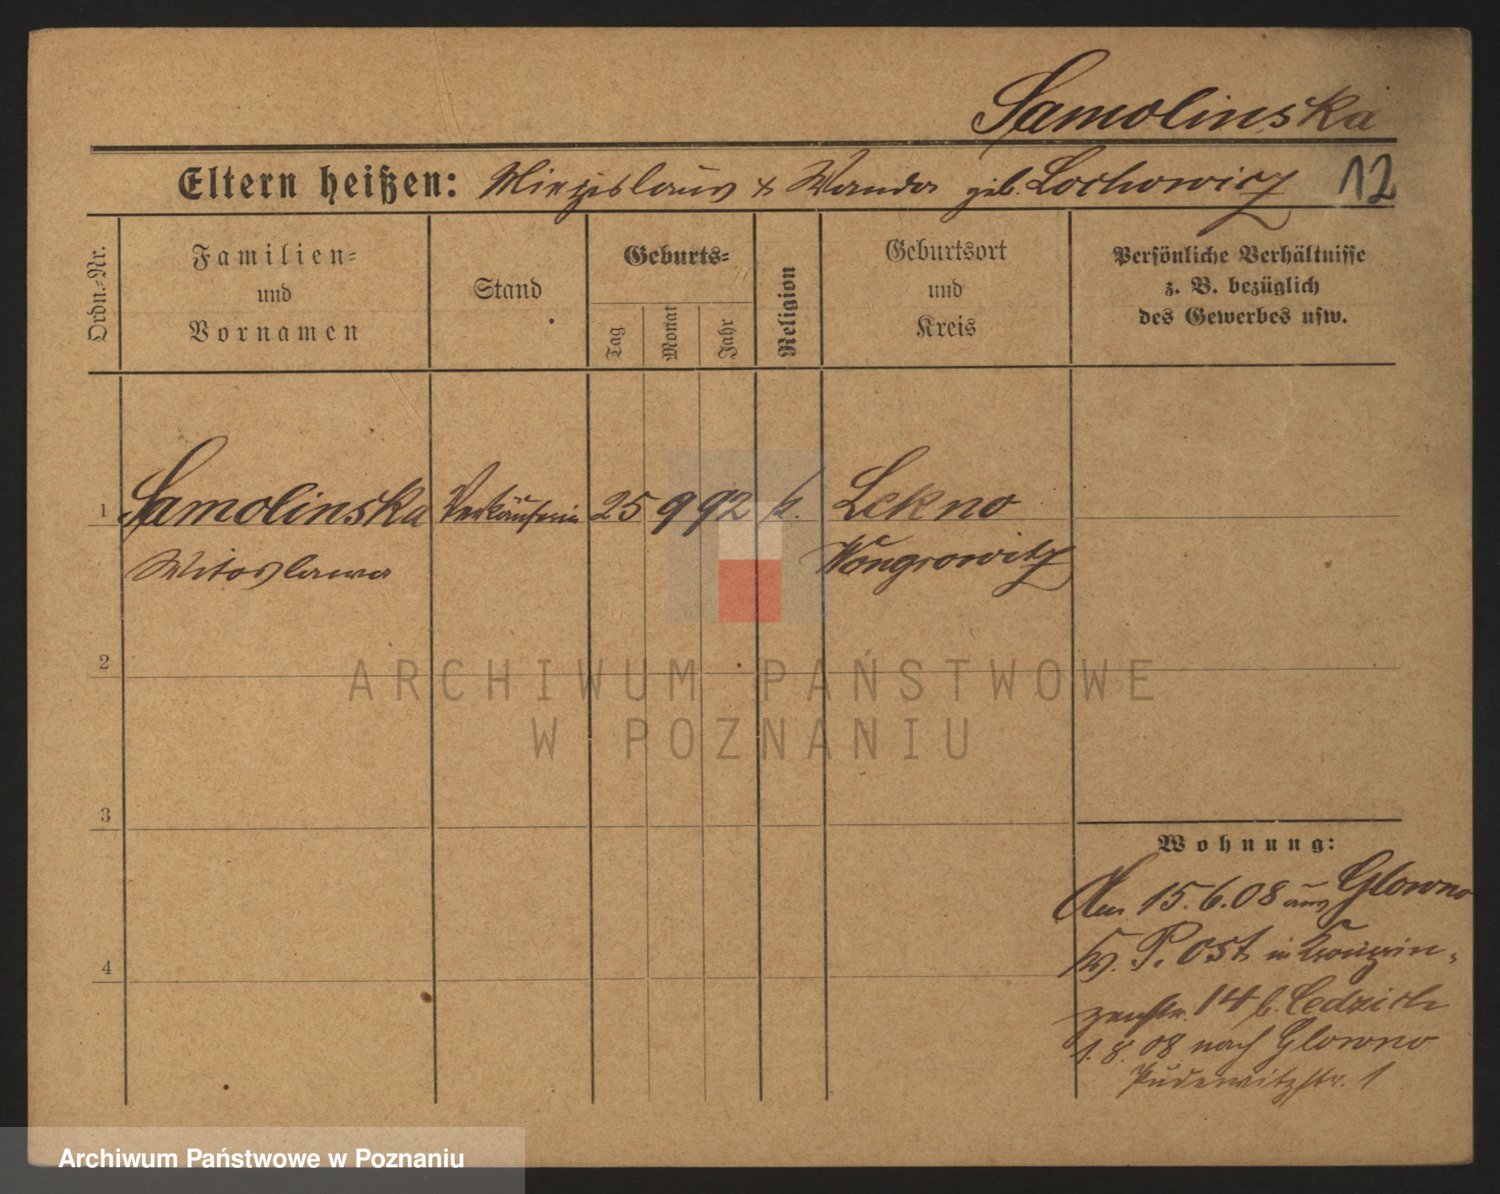 Samolinska
Eltern heißen: Miezislaus & Wanda geb. Lochowicz 12
Ordn.-Nr.
Familien-
und
Vornamen
Stand
Geburts-
Tag
Monat
Jahr
Religion
Geburtsort
und
Kreis
Persönliche Verhältnisse
z. B. bezüglich
des Gewerbes usw.
1 Samolinska Verkäuferin 25 9 92 k. Lekno
Witoslawa Wongrowitz
2
3
4
Wohnung:
Am 15.6.08 aus Glowno
P. Ost in Kronprin-
zenstr. 14 b. Cedzich
1.8.08 nach Glowno
Pudewitzstr. 1
ARCHIWUM PAŃSTWOWE
W POZNANIU
Archiwum Państwowe w Poznaniu